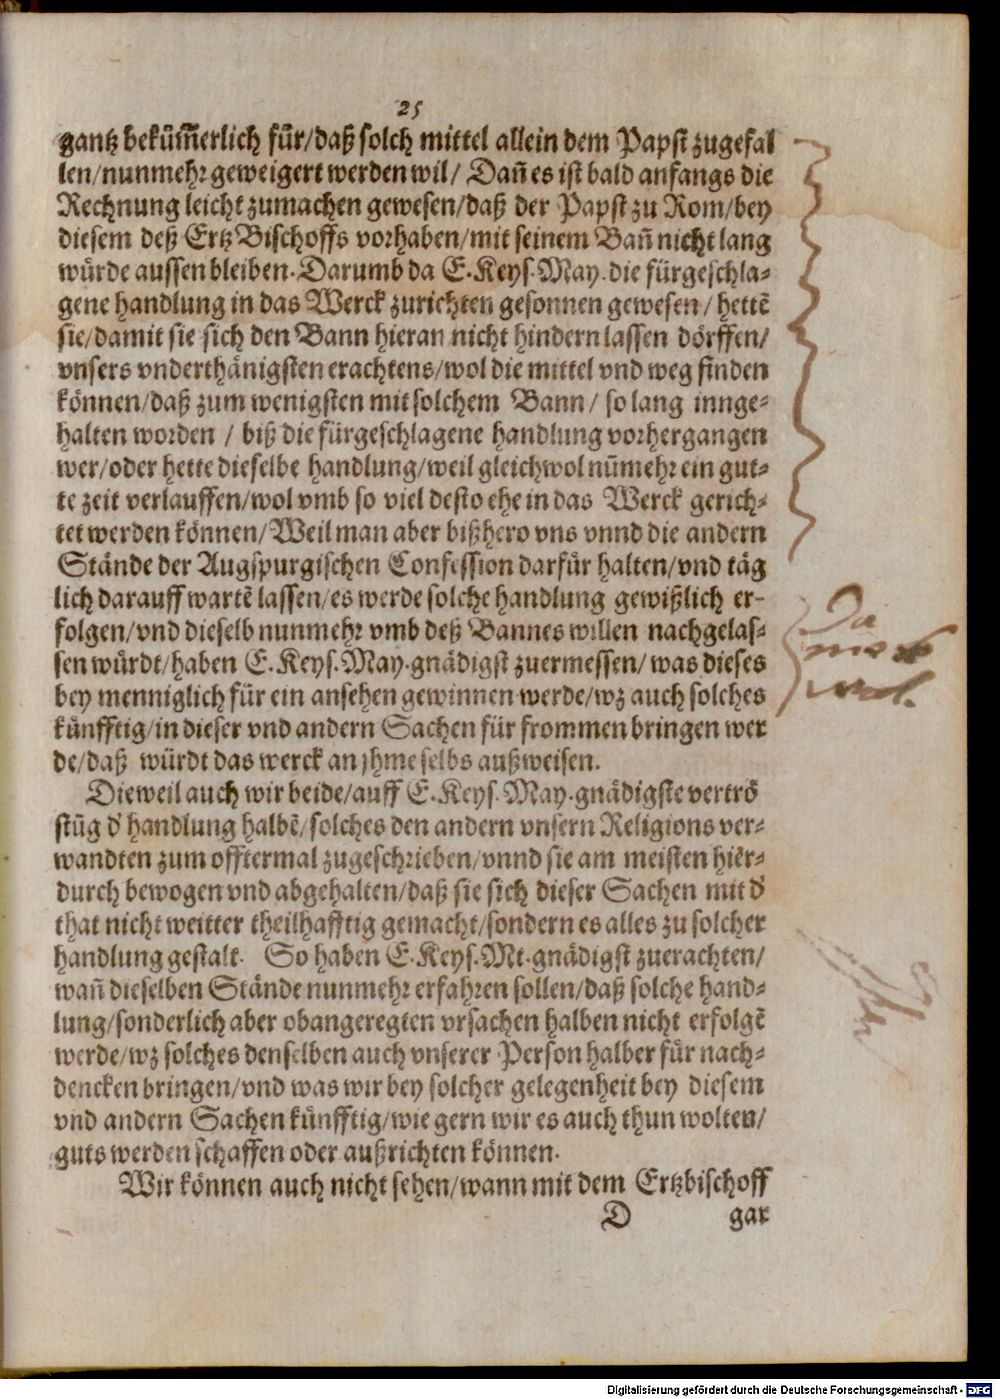 25
gantz bekům̃erlich für/daß solch mittel allein dem Papst zugefal
len/nunmehr geweigert werden wil/ Dañ es ist bald anfangs die
Rechnung leicht zumachen gewesen/daß der Papst zu Rom/bey
diesem deß ErtzBischoffs vorhaben/mit seinem Bañ nicht lang
würde aussen bleiben. Darumb da E. Keys. May. die fürgeschla-
gene handlung in das Werck zurichten gesonnen gewesen/ hettẽ
sie/damit sie sich den Bann hieran nicht hindern lassen dörffen/
vnsers vnderthänigsten erachtens/wol die mittel vnd weg finden
können/daß zum wenigsten mit solchem Bann/ so lang innge-
halten worden / biß die fürgeschlagene handlung vorhergangen
wer/oder hette dieselbe handlung/weil gleichwol nũmehr ein gut-
te zeit verlauffen/wol vmb so viel desto ehe in das Werck gerich-
tet werden können/Weil man aber bißhero vns vnnd die andern
Stände der Augspurgischen Confession darfür halten/vnd täg
lich darauff wartẽ lassen/es werde solche handlung gewißlich er-
folgen/vnd dieselb nunmehr vmb deß Bannes willen nachgelas-
sen würdt/haben E. Keys. May. gnädigst zuermessen/was dieses
bey menniglich für ein ansehen gewinnen werde/wz auch solches
künfftig/in dieser vnd andern Sachen für frommen bringen wer
de/daß würdt das werck an jhme selbs außweisen.
Dieweil auch wir beide/auff E. Keys. May. gnädigste vertrö
stũg d' handlung halbẽ/solches den andern vnsern Religions ver-
wandten zum offtermal zugeschrieben/vnnd sie am meisten hier-
durch bewogen vnd abgehalten/daß sie sich dieser Sachen mit d'
that nicht weitter theilhafftig gemacht/sondern es alles zu solcher
handlung gestalt. So haben E. Keys. Mt. gnädigst zuerachten/
wañ dieselben Stände nunmehr erfahren sollen/daß solche hand-
lung/sonderlich aber obangeregten vrsachen halben nicht erfolgẽ
werde/wz solches denselben auch vnserer Person halber für nach-
dencken bringen/vnd was wir bey solcher gelegenheit bey diesem
vnd andern Sachen künfftig/wie gern wir es auch thun wolten/
guts werden schaffen oder außrichten können.
Wir können auch nicht sehen/wann mit dem Ertzbischoff
D gar
Da
Digitalisierung gefördert durch die Deutsche Forschungsgemeinschaft - DFG